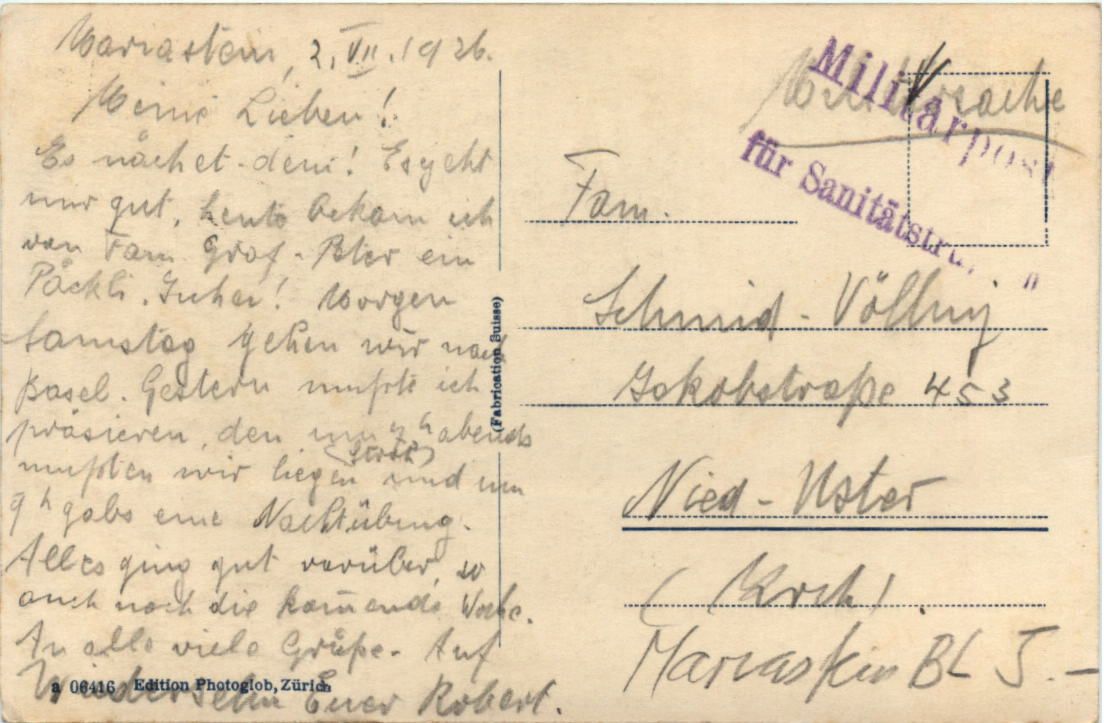 Mariastein, 2. VII. 1926.
Meine Lieben!
Es nächet dem! Es geht
mir gut, heute bekam ich
von Fam. Graf-Peter ein
Päckli. Juhei! Morgen
Samstag gehen wir nach
Basel. Gestern mußte ich
präsieren, den um h abends
mußten wir liegen (Stroh) und um
9 h gabs eine Nachtübung.
Alles ging gut vorüber, so
auch noch die kom̄ende Woche.
An alle viele Grüße. Auf
Wiedersehn Euer Robert.
a 06416 Edition Photoglob, Zürich
(Fabrication Suisse)
Militärsache
Militärpost
für Sanitätstru n
Fam.
Schmid - Völlmy
Jakobstraße 453
Nied - Uster
( Zrch ).
BL